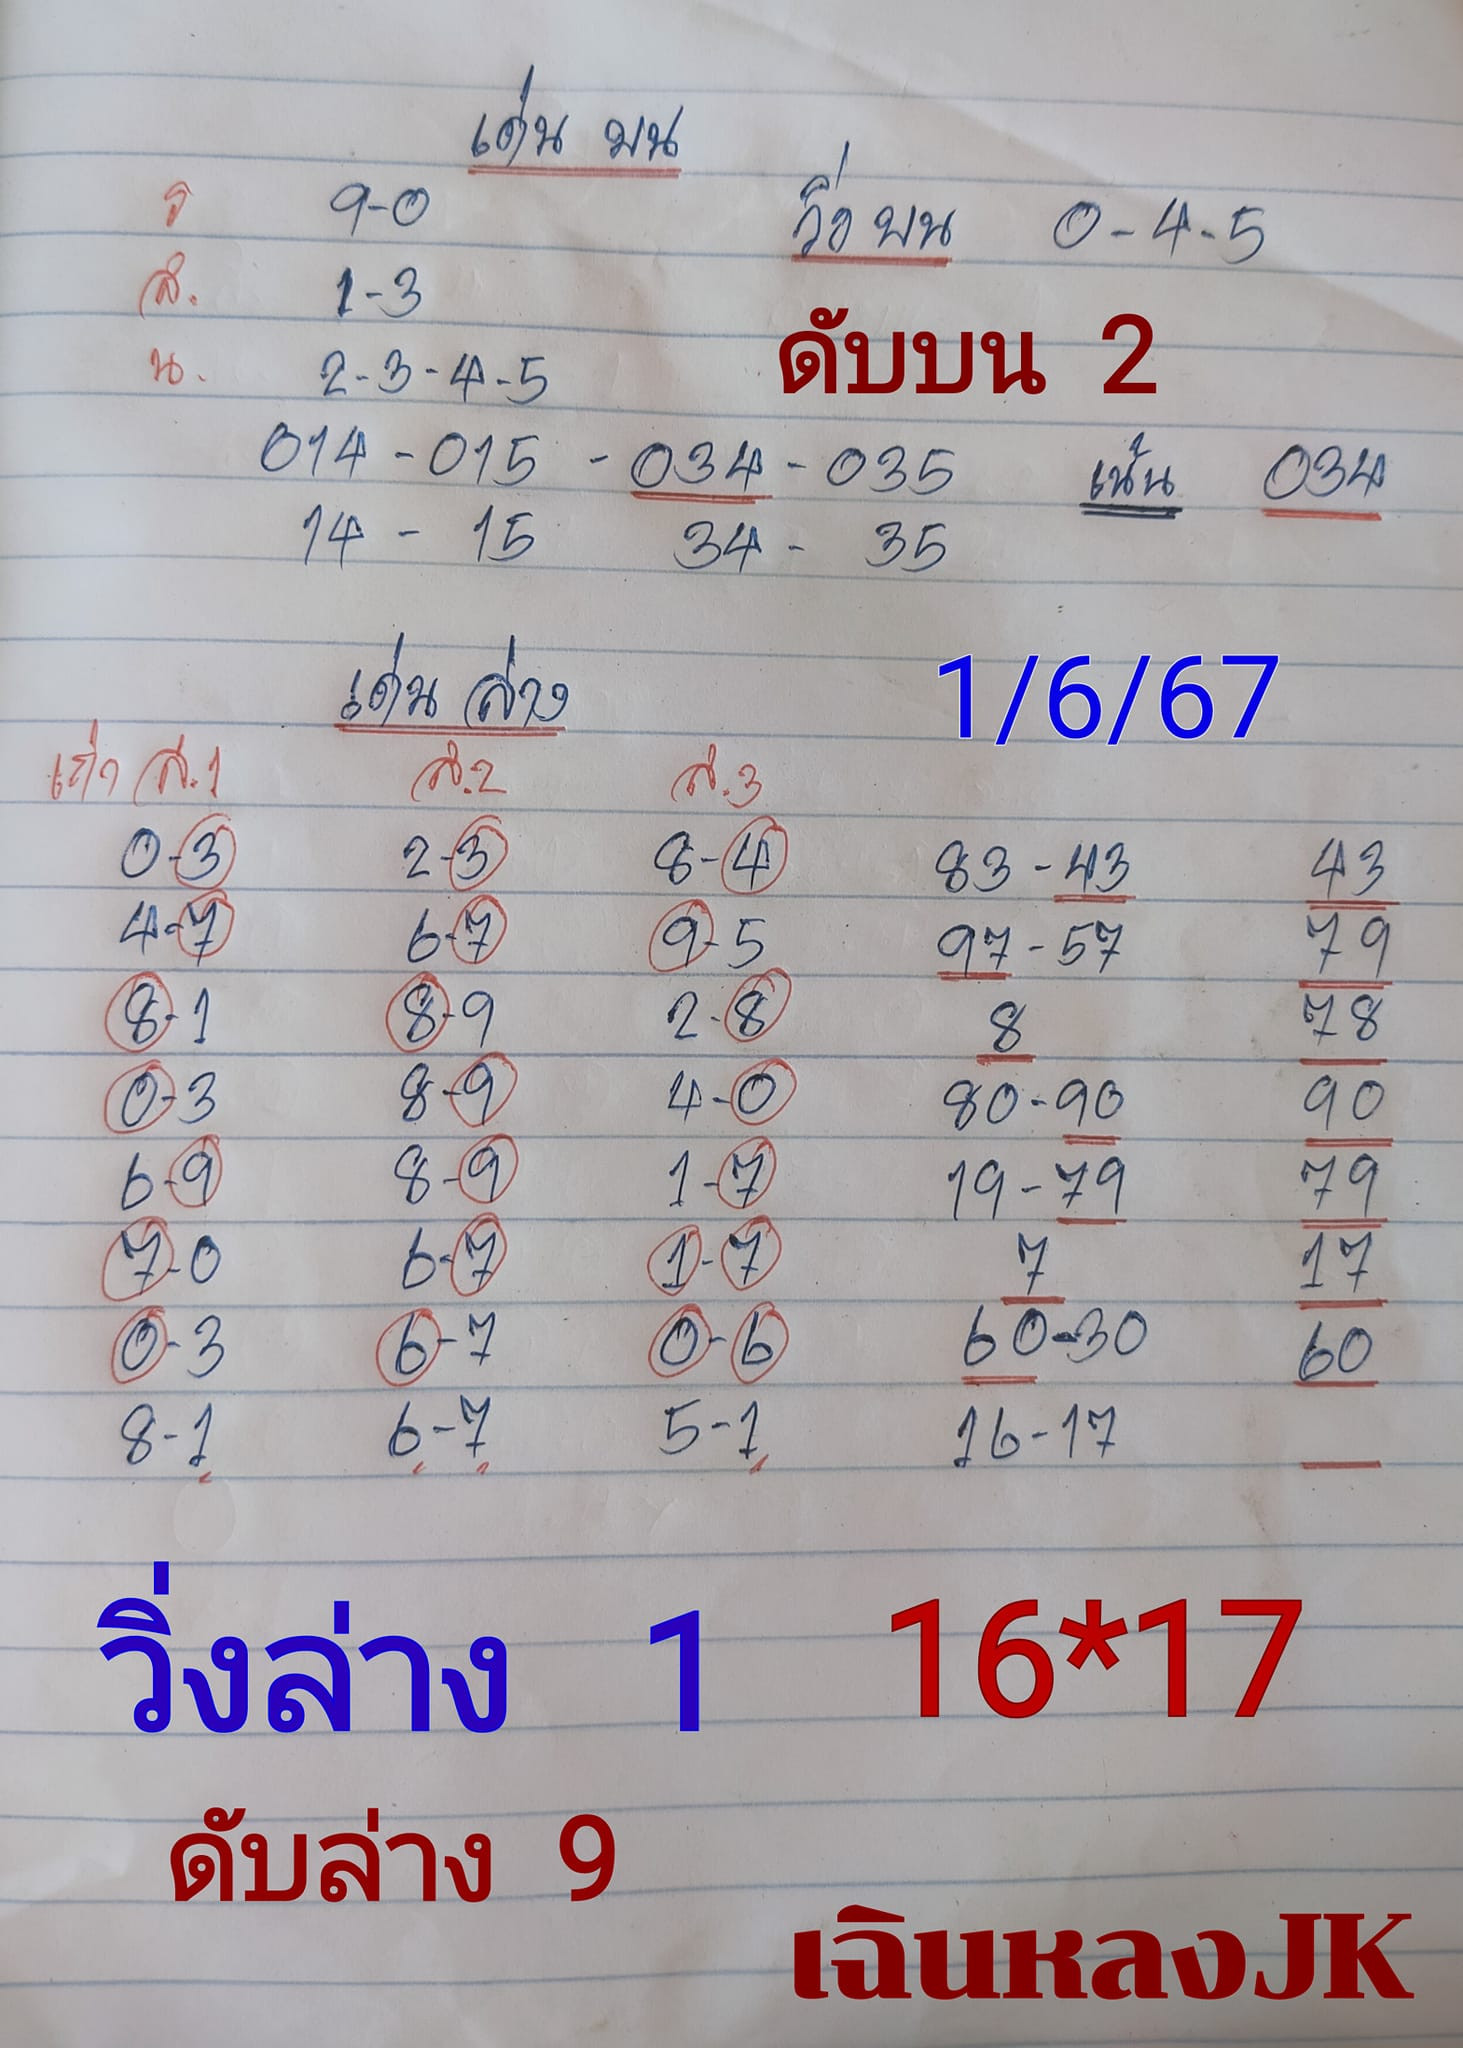 เด่น บน
ร 9-0
วิ่ง บน 0-4-5
ส. 1-3
ดับบน 2
น. 2-3-4-5
014-015-034-035 เน้น 034
14-15 34-35
เด่น ล่าง
1/6/67
เก่า ส.1 ส.2 ส.3
0-3 2-3 8-4 83-43 43
4-7 6-7 9-5 97-57 79
8-1 8-9 2-8 8 78
0-3 8-9 4-0 80-90 90
6-9 8-9 1-7 19-79 79
7-0 6-7 1-7 7 17
0-3 6-7 0-6 60-30 60
8-1 6-7 5-1 16-17
วิ่งล่าง 1 16*17
ดับล่าง 9
เฉินหลงJK